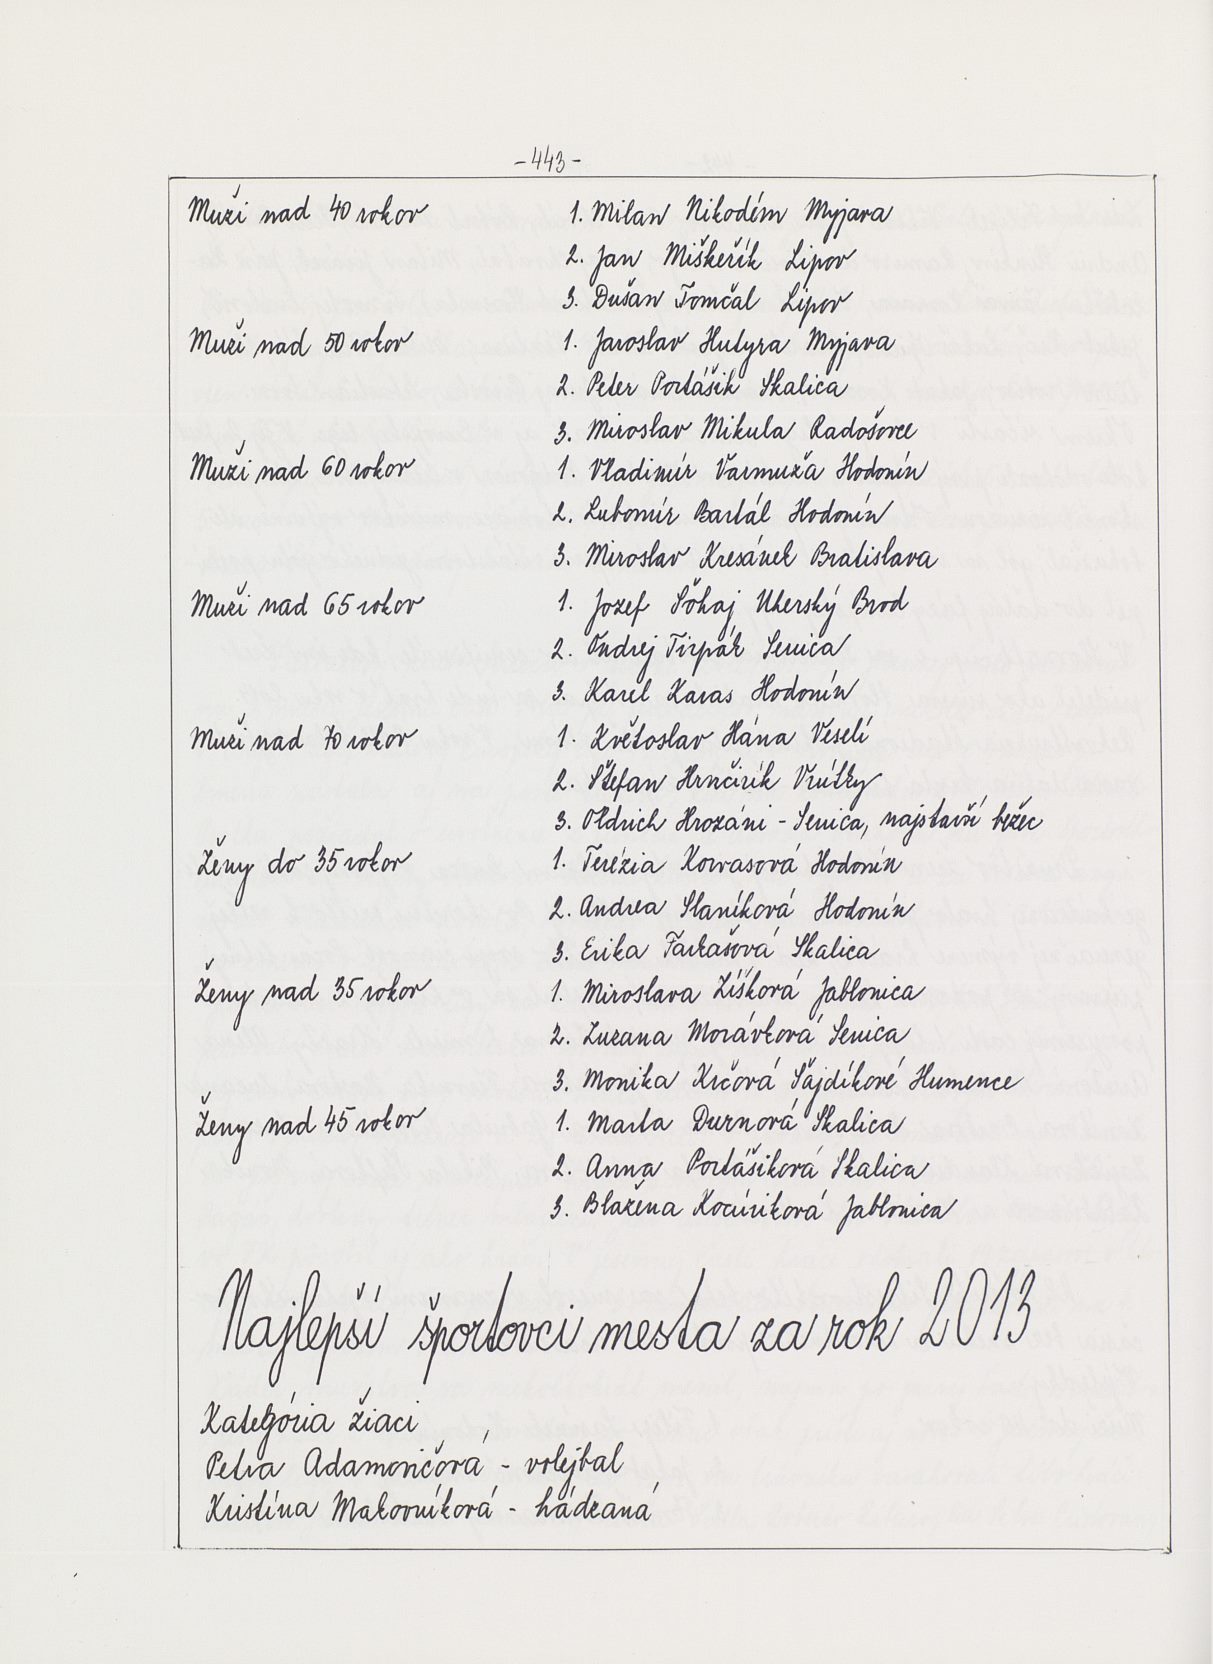 -443-
Muži nad 40 rokov 1. Milan Nikodém Myjava
2. Jan Miškeřík Lipov
3. Dušan Tomčal Lipov
Muži nad 50 rokov 1. Jaroslav Hutyra Myjava
2. Peter Portášik Skalica
3. Miroslav Mikula Radošovce
Muži nad 60 rokov 1. Vladimír Varmuža Hodonín
2. Lubomír Bartál Hodonín
3. Miroslav Kresánek Bratislava
Muži nad 65 rokov 1. Jozef Šohaj Uherský Brod
2. Ondrej Tirpák Senica
3. Karel Karas Hodonín
Muži nad 70 rokov 1. Květoslav Hána Veselí
2. Štefan Hrnčirík Vrútky
3. Oldrich Hrozáni - Senica, najstarší bežec
Ženy do 35 rokov 1. Terézia Kovrasová Hodonín
2. Andrea Slaníková Hodonín
3. Erika Farkašová Skalica
Ženy nad 35 rokov 1. Miroslava Zíšková Jablonica
2. Zuzana Morávková Senica
3. Monika Krčová Šajdíkové Humence
Ženy nad 45 rokov 1. Marta Durnová Skalica
2. Anna Portášiková Skalica
3. Blažena Kocúriková Jablonica
Najlepší športovci mesta za rok 2013
Kategória žiaci
Petra Adamovičová - volejbal
Kristína Makovníková - hádzaná